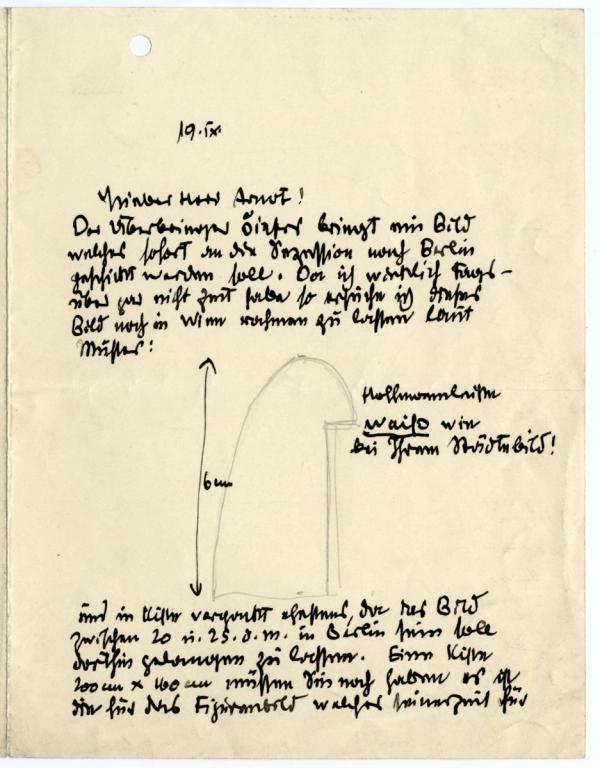 19.IX.
Lieber Herr Arnot!
Der Überbringer Dieses bringt ein Bild
welches sofort an die Sezession nach Berlin
geschickt werden soll. Da ich wirklich tags-
über gar nicht Zeit habe so ersuche ich dieses
Bild noch in Wien rahmen zu lassen laut
Muster:
Hoffmannleiste
weiß wie
bei Ihrem Städtebild!
6 cm
und in Kiste verpackt ehestens, da das Bild
zwischen 20 u. 25. d. M. in Berlin sein soll
dorthin gelangen zu lassen. Eine Kiste
200 cm x 160 cm müssen Sie noch haben es ist
die für das Figurenbild welches seinerzeit für